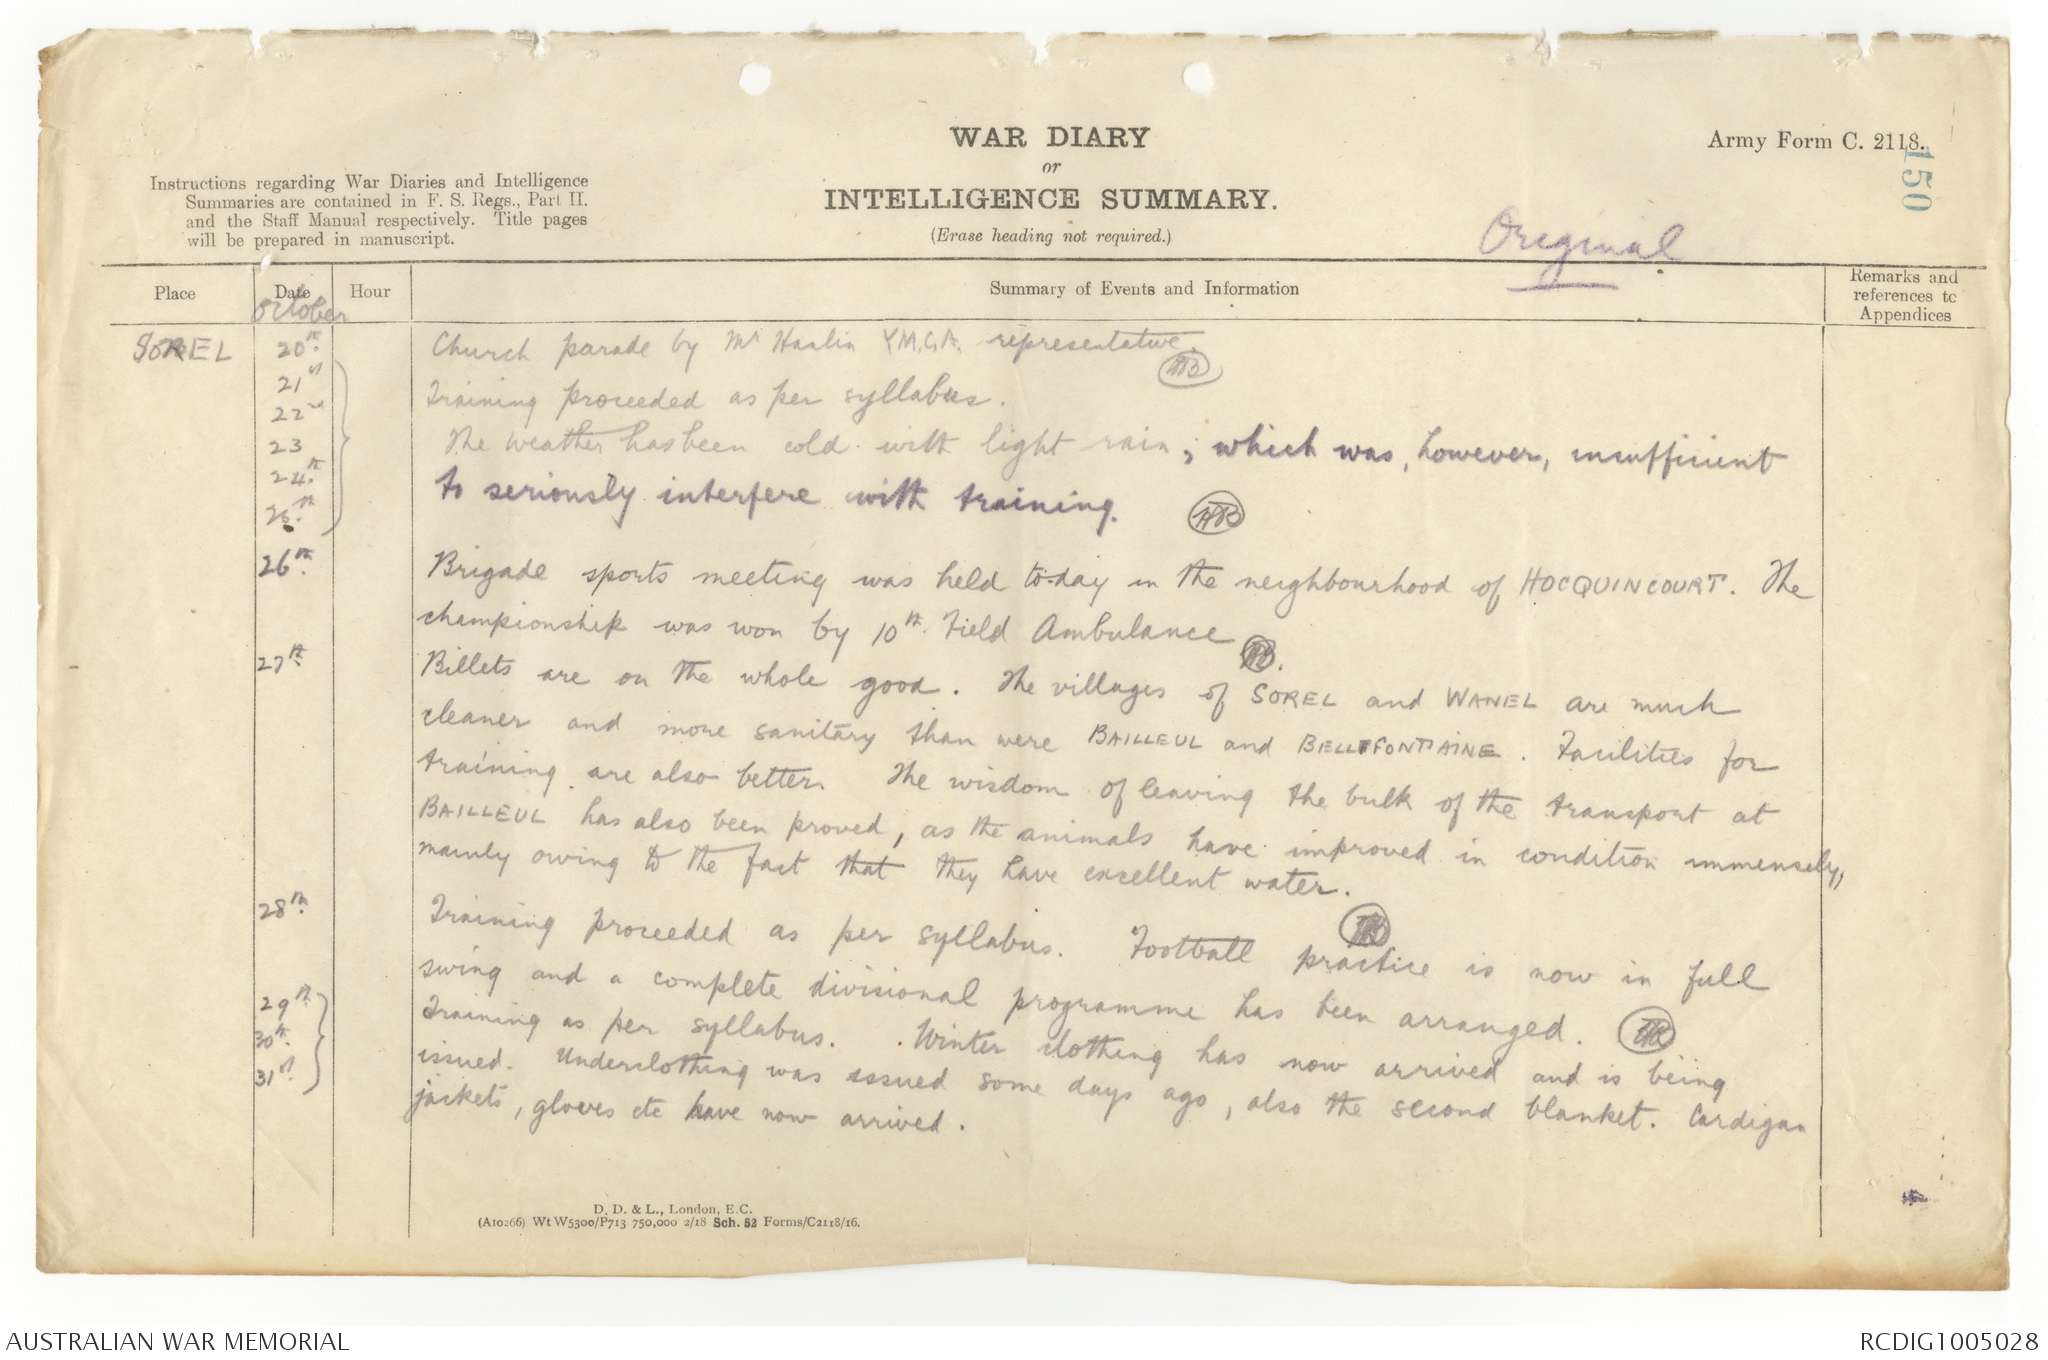 WAR DIARY
or
INTELLIGENCE SUMMARY.
(Erase heading not required.)
Army Form C. 2118.
150
Original
Instructions regarding War Diaries and Intelligence
Summaries are contained in F. S. Regs., Part II.
and the Staff Manual respectively. Title pages
will be prepared in manuscript.
Place
Date
Hour
Summary of Events and Information
Remarks and
references to
Appendices
October
SOREL 20th. Church parade by Mr Y.M.C.A. representative.
21st
22nd Training proceeded as per syllabus.
23 The weather has been cold with light rain; which was, however, insufficient
24th. to seriously interfere with training.
25th.
26th. Brigade sports meeting was held to-day in the neighbourhood of HOCQUINCOURT. The
championship was won by 10th. Field Ambulance
27th. Billets are on the whole good. The villages of SOREL and WANEL are much
cleaner and more sanitary than were BAILLEUL and BELLEFONTAINE. Facilities for
training are also better. The wisdom of leaving the bulk of the transport at
BAILLEUL has also been proved, as the animals have improved in condition immensely,
mainly owing to the fact that they have excellent water.
28th. Training proceeded as per syllabus. Football practice is now in full
swing and a complete divisional programme has been arranged.
29th. Training as per syllabus. Winter clothing has now arrived and is being
30th. issued. Underclothing was issued some days ago, also the second blanket. Cardigan
31st. jackets, gloves etc have now arrived.
D. D. & L., London, E.C.
(A10266) Wt W5300/P713 750,000 2/18 Sch. 52 Forms/C2118/16.
AUSTRALIAN WAR MEMORIAL
RCDIG1005028